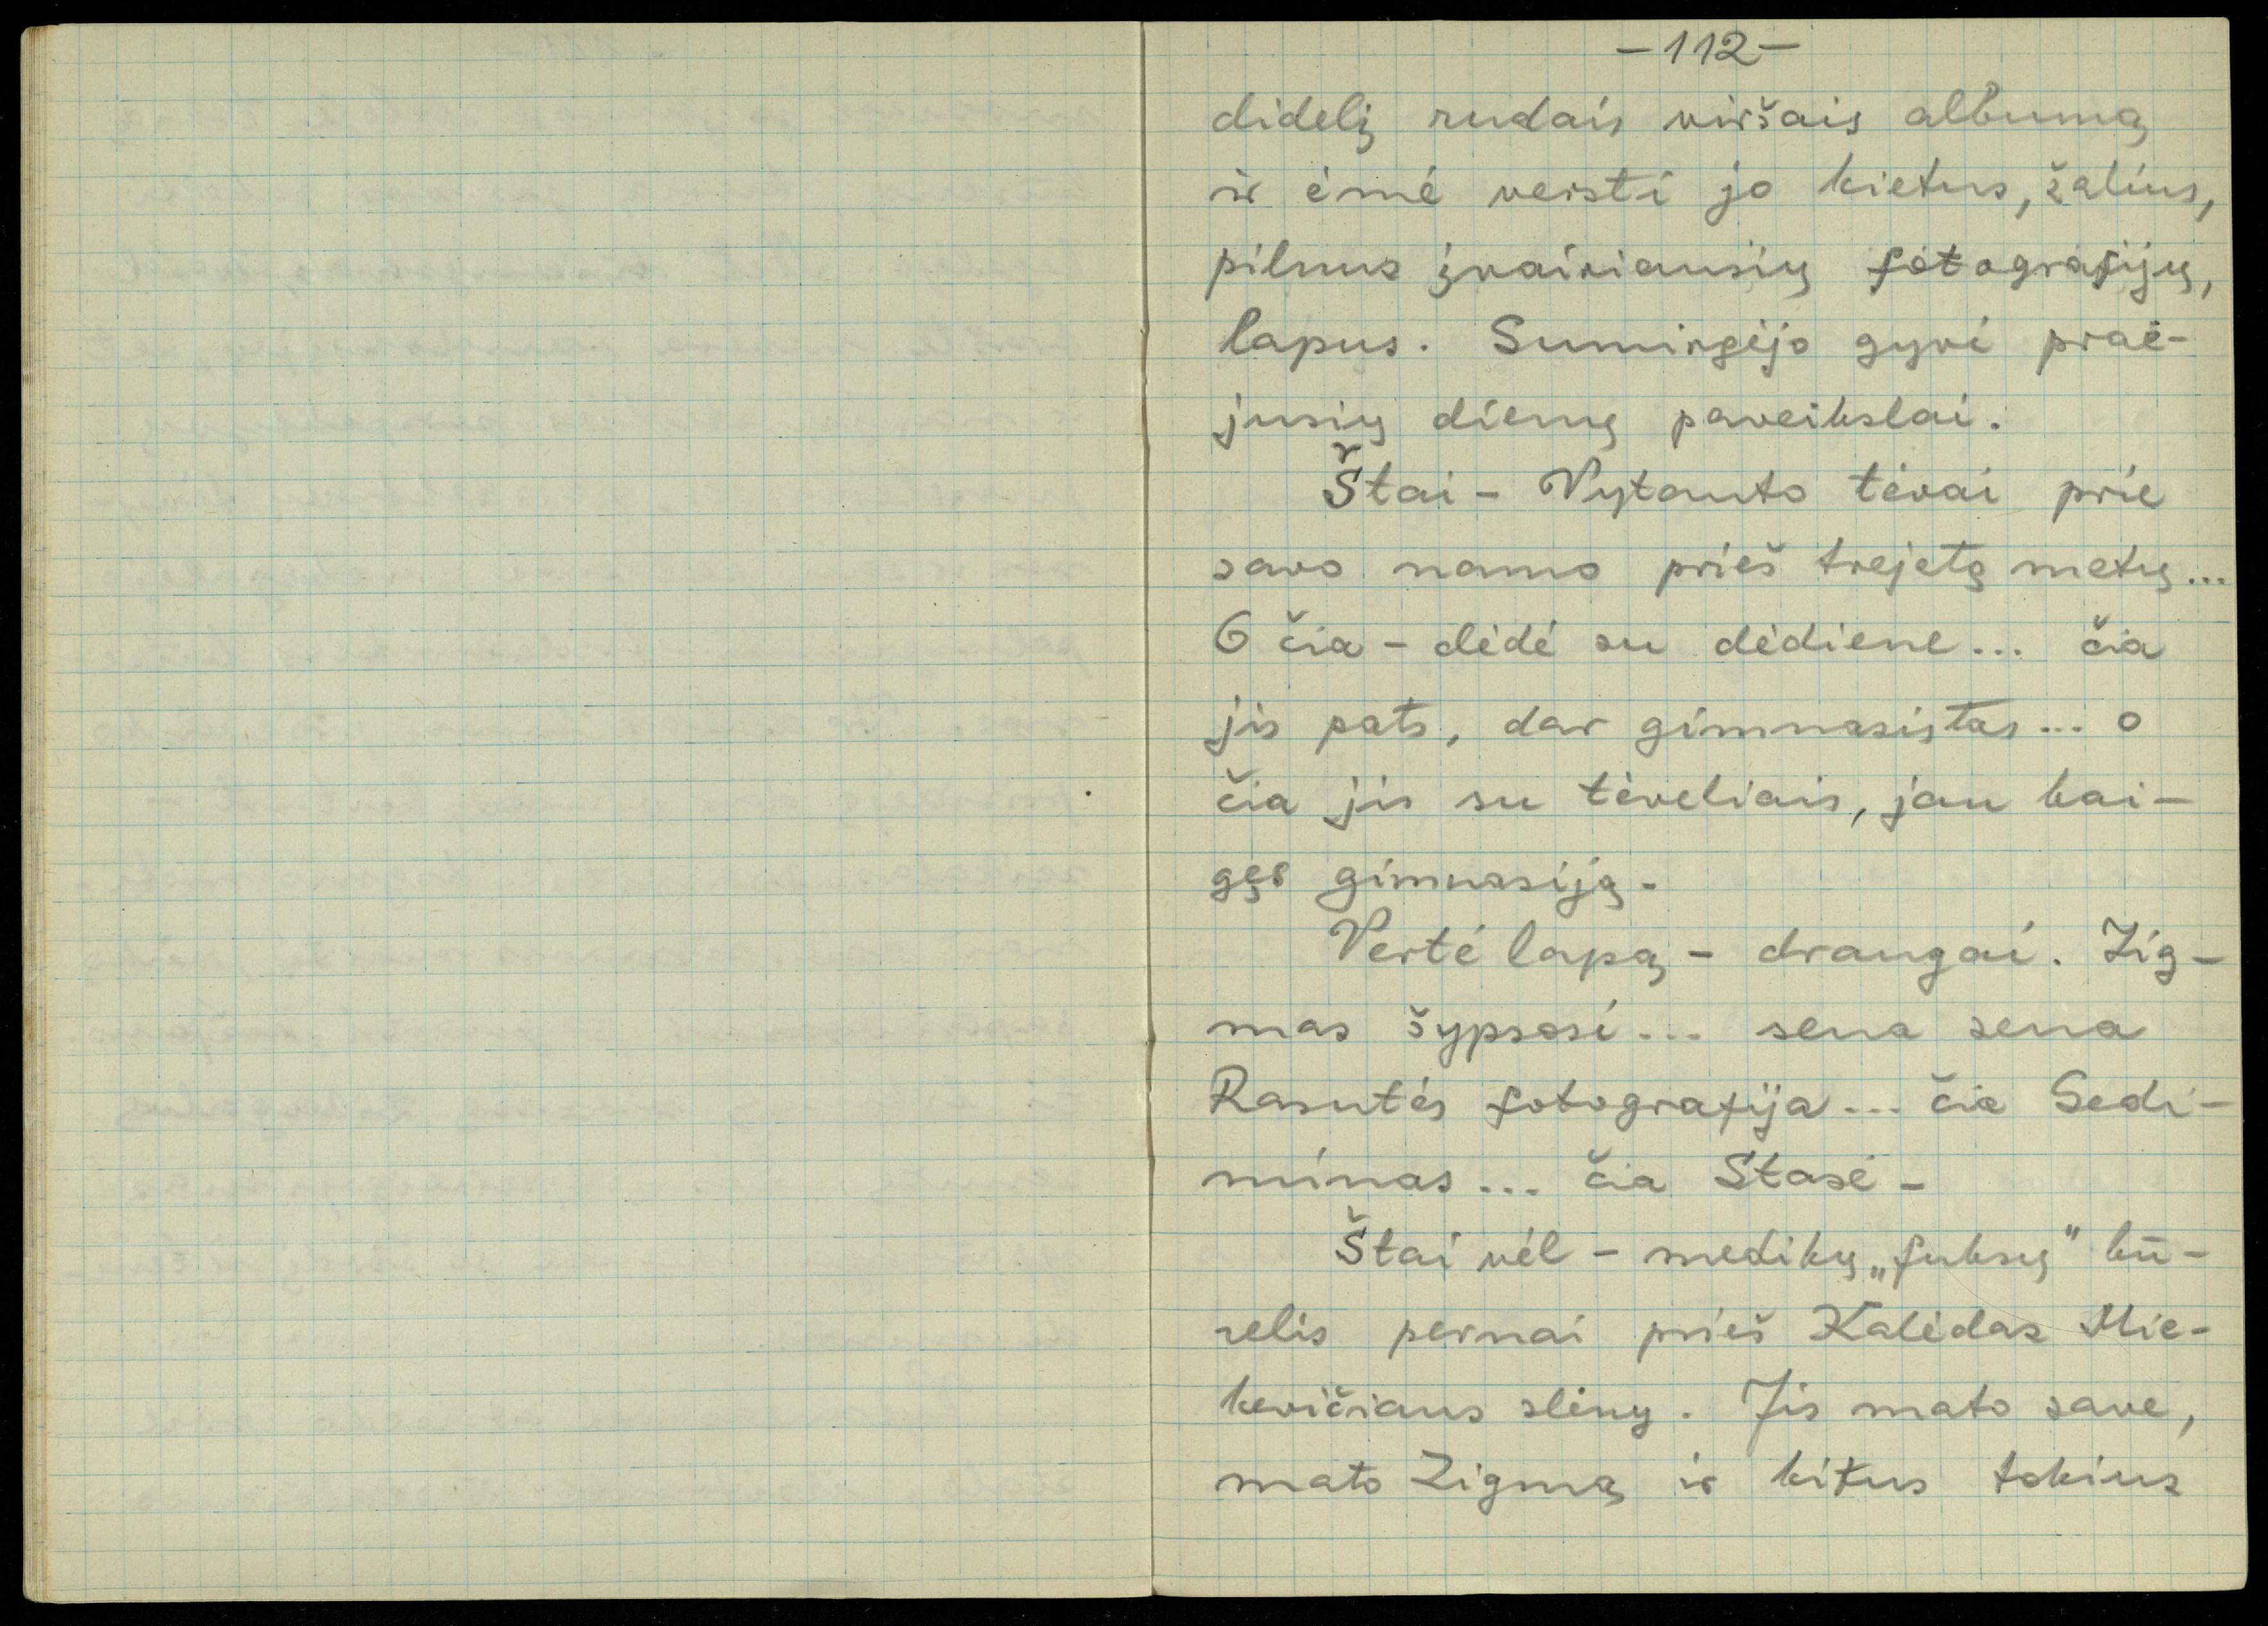 -112-
didelį rudais viršais albumą
ir ėmė versti jo kietus, žalius,
pilnus įvairiausių fotografijų,
lapus. Sumirgėjo gyvi praė-
jusių dienų paveikslai.
Štai - Vytauto tėvai prie
savo namo prieš trejetą metų...
O čia - dėdė su dėdiene... čia
jis pats, dar gimnasistas... o
čia jis su tėveliais, jau bai-
gęs gimnasiją.
Vertė lapą - draugai. Zig-
mas šypsosi... sena sena
Rasutės fotografija... čia Gedi-
minas... čia Stasė -
Štai vėl - medikų „fuksų" bū-
relis pernai prieš Kalėdas Mic-
kevičiaus slėny. Jis mato save,
mato Zigmą ir kitus tokius